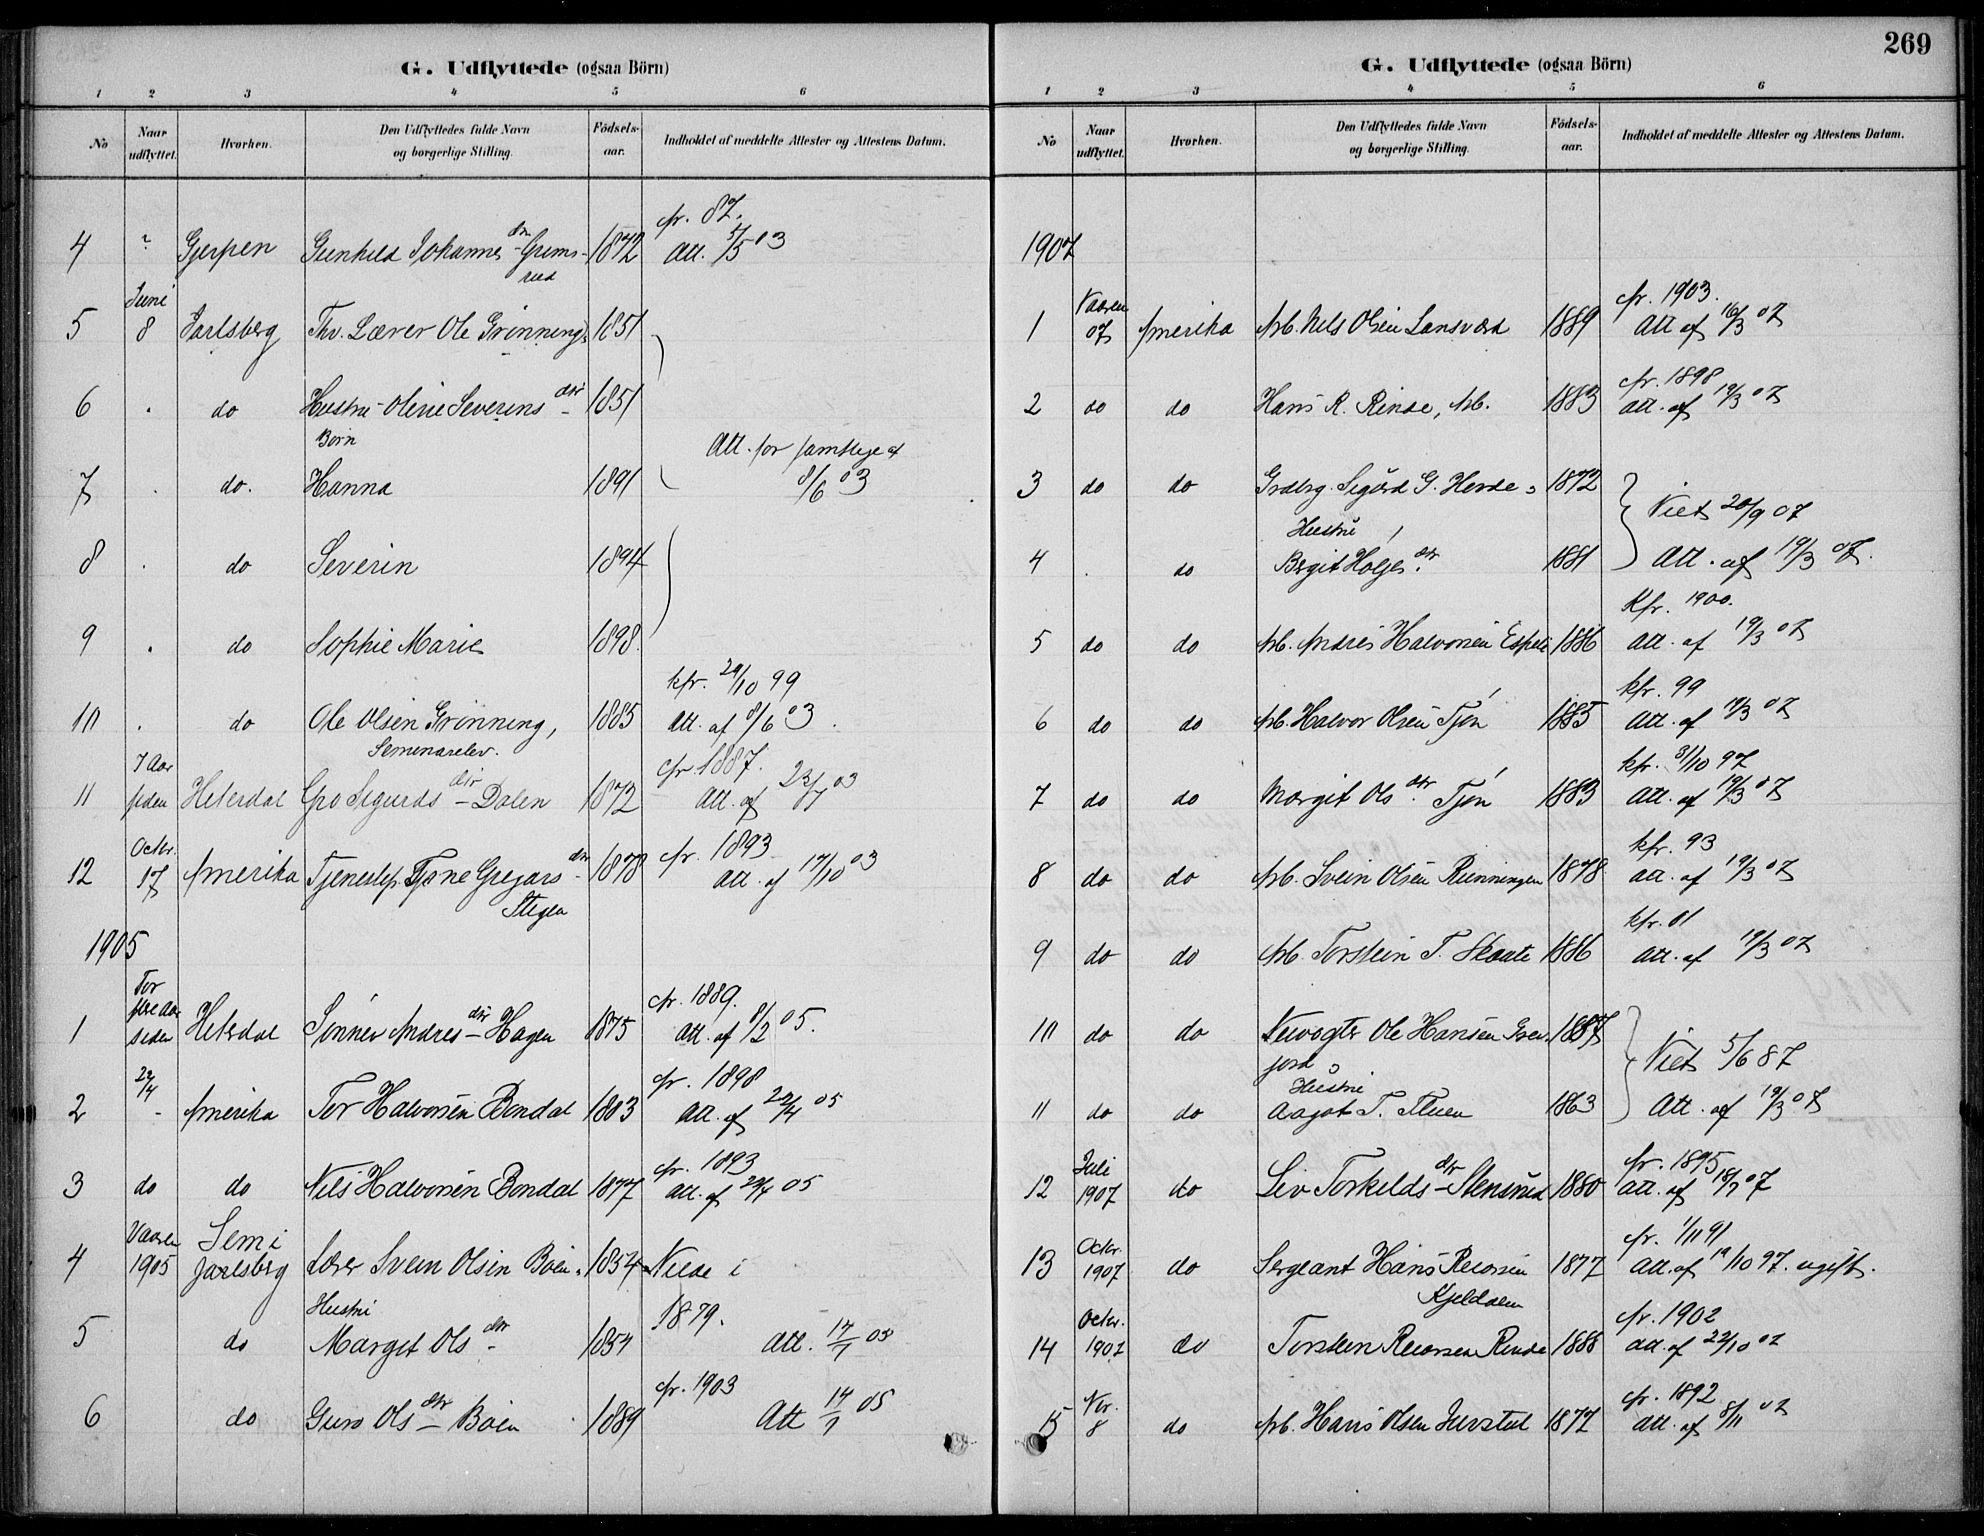 G. Udflyttede (ogsaa Börn)
1 2 3 4 5 6
No
Naar udflyttet.
Hvorhen.
Den Udflyttedes fulde Navn og borgerlige Stilling.
Födsels-aar.
Indholdet af meddelte Attester og Attestens Datum.
cfr. 87.
4 ? Gjerpen Gunhild Johannesdtr - Grims- 1872 Att. 5/5 03
rud
Juni
5 8 Jarlsberg Thv. Lærer Ole Grönning, 1851
6 . do Hustru Oline Severinsdtr - 1851
Börn
Att. for samtlige af
7 . do. Hanna 1891 8/6 03
8 . do Severin 1894
9 . do Sophie Marie 1898.
kfr. 29/10 99
10 . do Ole Olsen Grönning, 1885 Att. af 8/6 03.
Seminarelev.
7 Aar cfr 1887.
11 siden Hiterdal Gro Sigurdsdtr - Dalen 1872 Att. af 23/7 03
Octbr. cfr. 1893
12 17 Amerika Tjenestep. Tone Gregarsdtr - 1878 Att. af 17/10 03
Stigen
1905
For
flere Aar cfr. 1889.
1 siden Hiterdal Sönnev Andresdtr - Hagen 1875 Att. af 8/2 05.
22/4 cfr. 1898
2 - Amerika Tor Halvorsen Bondal 1883 Att. af 22/4 05
cfr. 1893
3 do do Nils Halvorsen Bondal 1877 Att. af 22/4 05
Vaaren Sem i
4 1905 Jarlsberg Lærer Svein Olsen Böen. 1854 Viede i
Hustru 1879.
5 do Margit Olsdtr - 1854 Att. 17/7 05
cfr. 1903
6 do Guro Olsdtr - Böen 1889 Att 17/7 05
269
G. Udflyttede (ogsaa Börn)
1 2 3 4 5 6
No
Naar udflyttet.
Hvorhen.
Den Udflyttedes fulde Navn og borgerlige Stilling.
Födsels-aar.
Indholdet af meddelte Attester og Attestens Datum.
1907
Vaaren cfr. 1903.
1 07 Amerika Arb. Nils Olsen Lansværk 1889 Att af 16/3 07
cfr. 1898
2 do do Hans R. Rinde, Arb. 1883 Att. af 19/3 07
3 do do Grdbrg. Sigurd G. 1872 Viet 20/9 07
Hustru
4 . do Birgit Holjesdtr. 1881 Att. af 19/3 07.
Kfr. 1900.
5 do do Arb. Andres Halvorsen Espeli 1886 Att. af 19/3 07
kfr. 99
6 do do Arb. Halvor Olsen Tjön 1885 Att. af 19/3 07
kfr. 31/10 97
7 do do Margit Olsdtr. Tjön 1883 Att. af 19/3 07
kfr. 93
8 do do Arb. Svein Olsen Runningen 1878 Att. af 19/3 07
kfr. 01
9 do do Arb. Torstein T. Skaate 1886 Att. af 19/3 07
10 do do Ole Hansen
jord Viet 5/6 87
Hustru
11 do do Aagot T. 1863 Att. af 19/3 07
Juli cfr. 1895
12 1907 do Liv Torkeldsdtr - Stensrud 1880 Att. af 18/7 07
Octbr. cfr. 1/11 91
13 1907 do Sergeant Hans Reiersen 1877 Att. af 19/10 97. ugift.
Kjeldalen
Octbr. cfr. 1902
14 1907 do Torstein Reiersen Rinde 1888 Att. af 22/10 07
Nvr. cfr. 1892
15 8 do Arb. Hans Olsen Jurstul 1877 Att. af 8/11 07